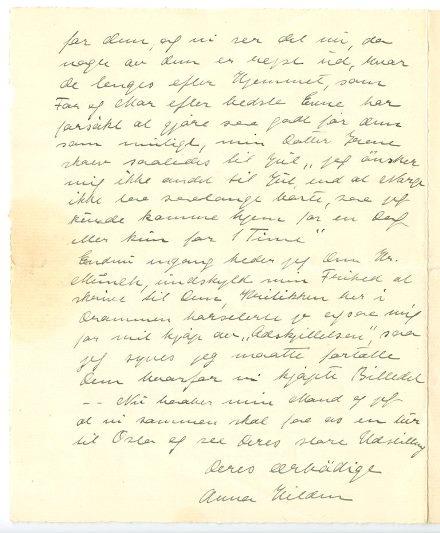 for dem, og vi ser det nu, da
nogle av dem er rejst ud, hvor
de lenges efter Hjemmet, som
Far og Mor efter bedste Evne har
forsøkt at gjøre saa godt for dem
som muligt, min Datter
skrev saaledes til Jul, "jeg ønsker
mig ikke andet til Jul end at Norge
ikke var saalangt borte, saa jeg
kunde komme hjem for en Dag
eller kun for 1 Time"
Endnu engang beder jeg Dem Hr.
Munch, undskyld min Frihed at
skrive til Dem, Kritikken her i
Drammen jo ogsaa mig
for mit kjøp av "Adskillelsen", saa
jeg synes jeg maatte fortælle
Dem hvorfor vi kjøpte Billedet
-- Nu haaber min Mand og jeg
at vi sammen skal faa os en tur
til Oslo og see Deres store Udstilling
Deres ærbødige
Anna